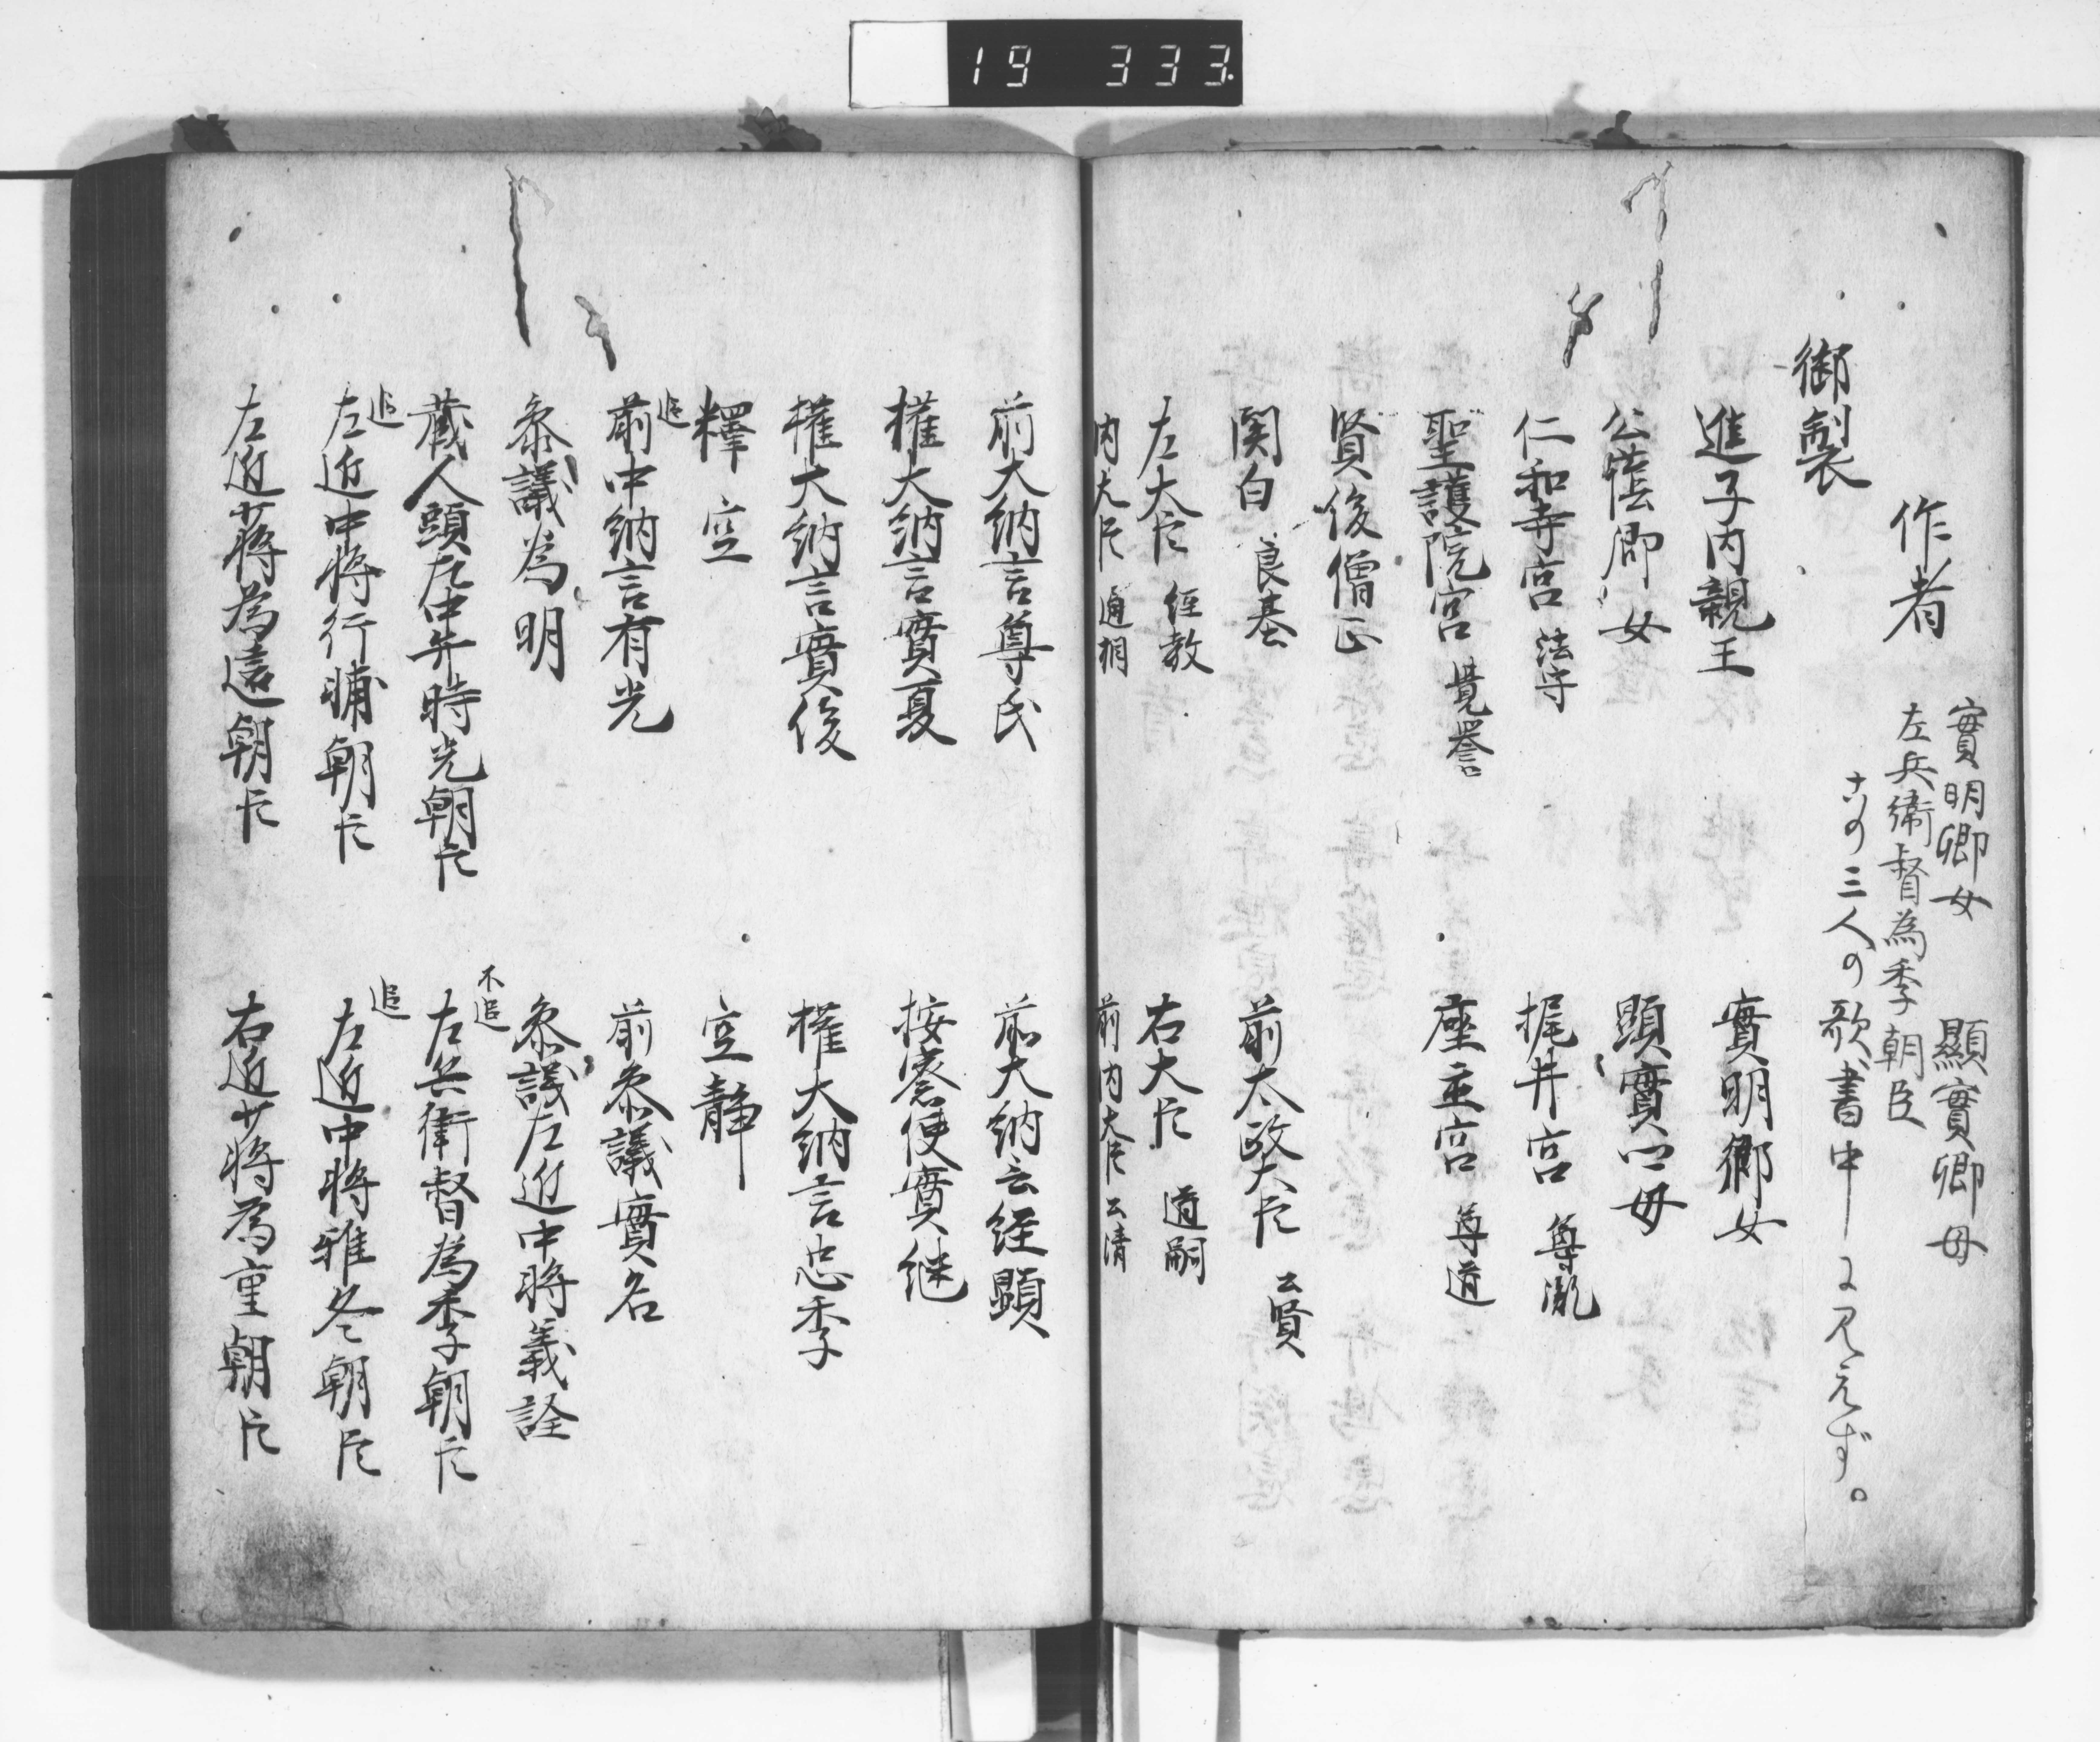 19 333
實明卿女　顯實卿母
左兵衛督為季朝臣
右の三人の歌書中ニ見えず。
作者
御製
進子内親王　實明卿女
公蔭卿女　顕實卿母
仁和寺宮 法守　梶井宮 尊胤
聖護院宮 覚誉　座主宮 尊道
賢俊僧正
関白 良基　前太政大臣 公賢
左大臣 経教　右大臣 道嗣
内大臣 通相　前内大臣 公清
前大納言尊氏　前大納言経顕
権大納言實夏　按察使實継
権大納言實俊　権大納言忠季
釋空　空静
追 前中納言有光　前参議實名
参議為明　参議左近中将義詮
蔵人頭左中弁時光朝臣　不追 左兵衛督為季朝臣
追 左近中将行輔朝臣　追 左近中将雅冬朝臣
左近少将為遠朝臣　右近少将為重朝臣